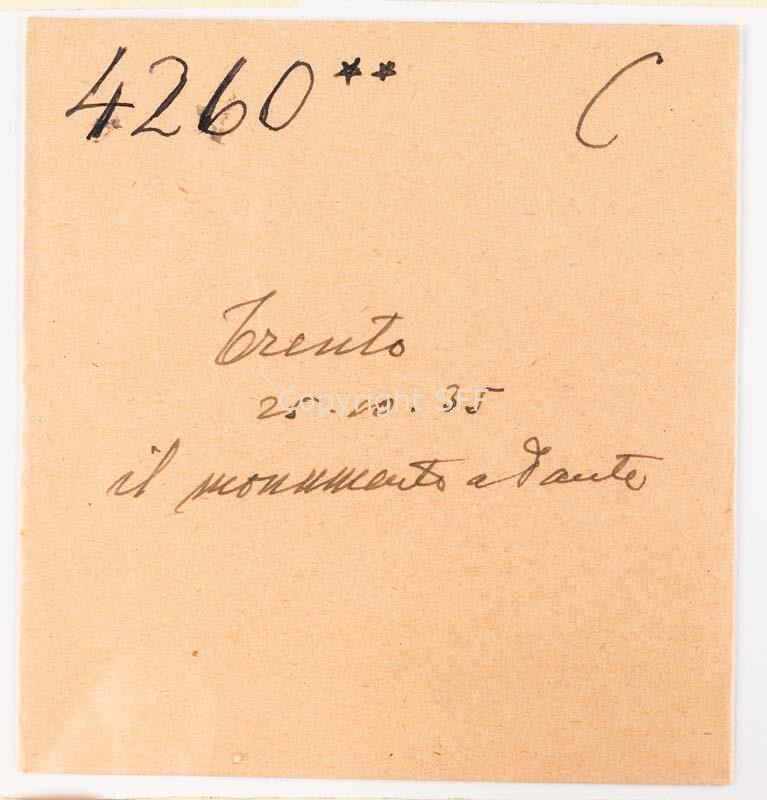 4260** C
Trento
25.10.35
il monumento a Dante
Copyright SFF